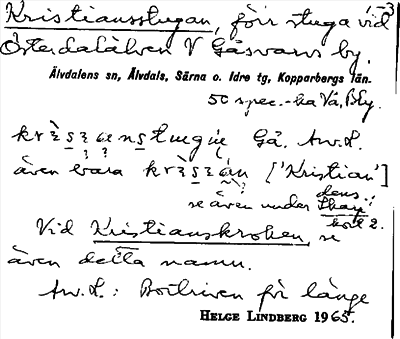 Kristiansstugan, förr stuga vid
Österdalälven V Gåsvarvs by.
Älvdalens sn, Älvdals, Särna o. Idre tg, Kopparbergs län.
50 spec.-ka Vå, Bly.
Gå. Aw.L.
även bara ['Kristian']
se även under dens.:
kort 2.
Vid Kristianskroken, se
även detta namn.
Aw.L.: Bortriven för länge
HELGE LINDBERG 1965.